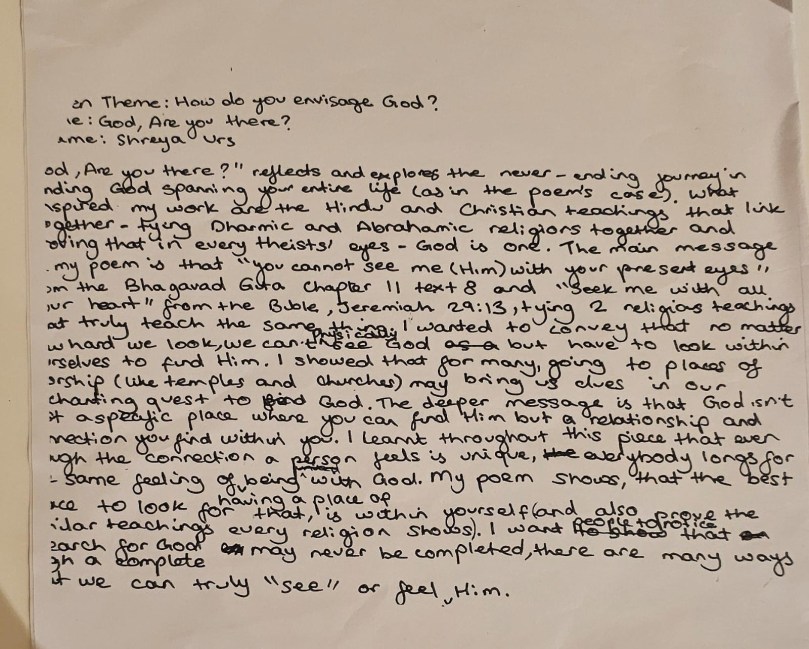 en Theme: How do you envisage God?
le: God, Are you there?
ame: Shreya Urs
od, Are you there?" reflects and explores the never-ending journey in
nding God spanning your entire life (as in the poem's case). What
nspired my work are the Hindu and Christian teachings that link
ogether - tying Dharmic and Abrahamic religions together and
oving that in every theists' eyes - God is one. The main message
my poem is that "you cannot see me (Him) with your present eyes",
om the Bhagavad Gita Chapter 11 text 8 and "Seek me with all
our heart" from the Bible, Jeremiah 29:13, tying 2 religios teachings
at truly teach the same thing. I wanted to convey that no matter
physically
w hard we look, we can't see God as a but have to look within
urselves to find Him. I showed that for many, going to places of
orship (like temples and churches) may bring us clues in our
chanting quest to find God. The deeper message is that God isn't
t a specific place where you can find Him but a relationship and
nnection you find within you. I learnt throughout this piece that even
ugh the connection a person feels is unique, the everybody longs for
same feeling of being with God. My poem shows, that the best
having a place of
ce to look for that, is within yourself (and also prove the
ilar teachings every religion shows). I want to show that
people to notice
earch for God may never be completed, there are many ways
gh a complete
t we can truly "see" or feel Him.